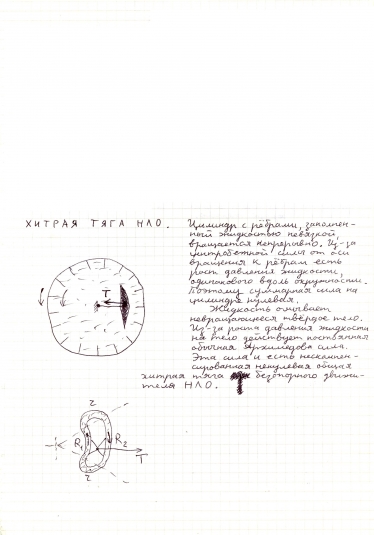 ХИТРАЯ ТЯГА НЛО.
Цилиндр с рёбрами, заполнен-
ный жидкостью невязкой,
вращается непрерывно. Из-за
центробежной силы от оси
вращения к рёбрам есть
рост давления жидкости,
одинакового вдоль окружности.
Поэтому суммарная сила на
цилиндре нулевая.
Жидкость омывает
невращающееся твёрдое тело.
Из-за роста давления жидкости
на тело действует постоянная
обычная Архимедова сила.
Эта сила и есть нескомпен-
сированная ненулевая общая
хитрая тяга безопорного движи-
теля НЛО.
T
2
R1
R2
T
2